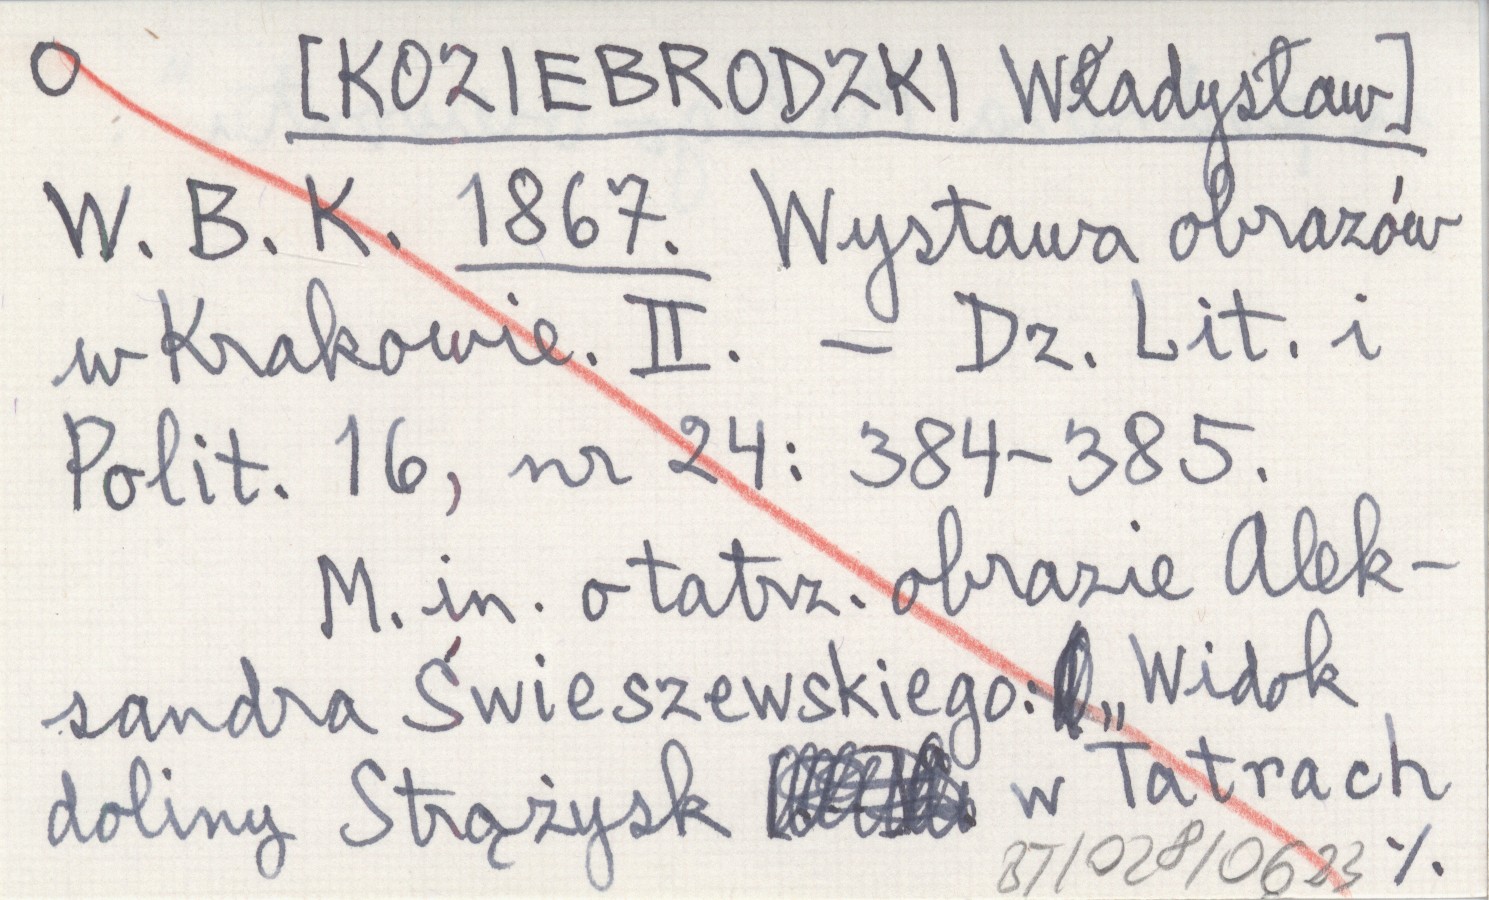 O [KOZIEBRODZKI Władysław]
W. B. K. 1867. Wystawa obrazów
w Krakowie. II. — Dz. Lit. i
Polit. 16, nr 24: 384-385.
M. in. o tatrz. obrazie Alek-
sandra Świeszewskiego: „Widok
doliny Strążysk w Tatrach
BT/028/0623 ·/.